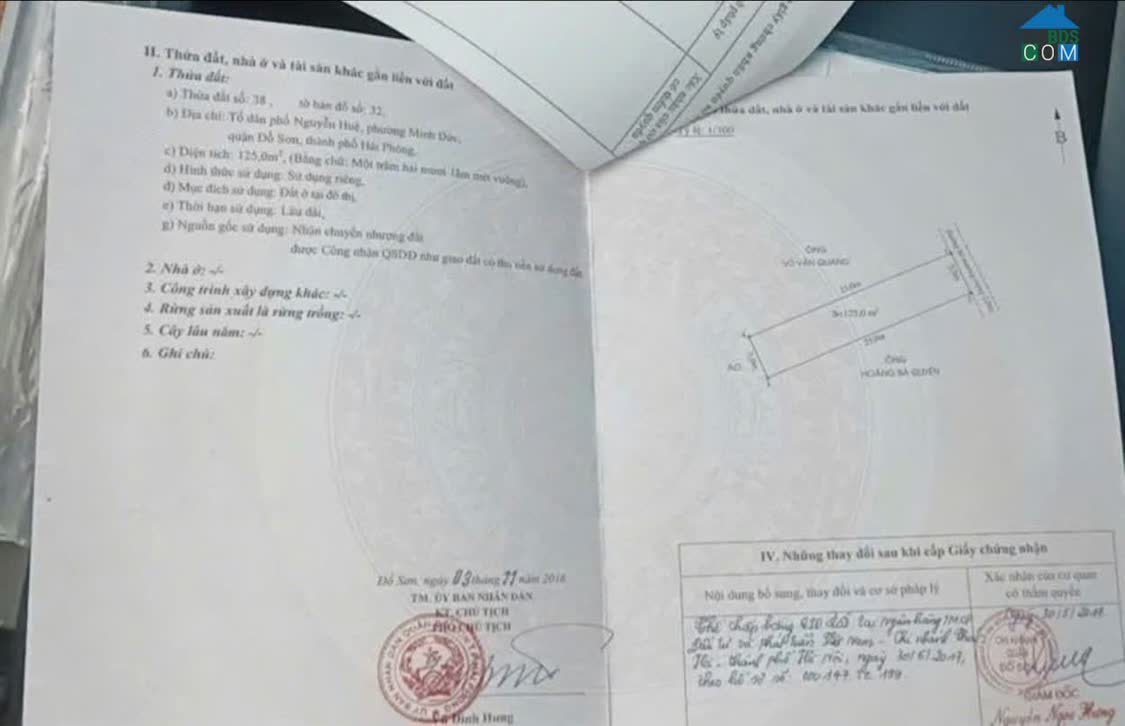 BDS
COM
II. Thửa đất, nhà ở và tài sản khác gắn liền với đất
1. Thửa đất:
a) Thửa đất số: 38 , tờ bản đồ số: 32,
b) Địa chỉ: Tổ dân phố Nguyễn Huệ, phường Minh Đức,
quận Đồ Sơn, thành phố Hải Phòng,
c) Diện tích: 125,0m², (Bằng chữ: Một trăm hai mươi lăm mét vuông),
d) Hình thức sử dụng: Sử dụng riêng,
đ) Mục đích sử dụng: Đất ở tại đô thị,
e) Thời hạn sử dụng: Lâu dài,
g) Nguồn gốc sử dụng: Nhận chuyển nhượng đất
được Công nhận QSDĐ như giao đất có thu tiền sử dụng đất
2. Nhà ở: -/-
3. Công trình xây dựng khác: -/-
4. Rừng sản xuất là rừng trồng: -/-
5. Cây lâu năm: -/-
6. Ghi chú:
Đồ Sơn, ngày 03 tháng 11 năm 2016
TM. ỦY BAN NHÂN DÂN
KT. CHỦ TỊCH
PHÓ CHỦ TỊCH
Đình Hưng
thửa đất, nhà ở và tài sản khác gắn liền với đất
B
ÔNG
VÕ VĂN QUANG
25.0m
S=125.0 m²
25.0m
AO
ÔNG
HOÀNG BÁ QUYỀN
IV. Những thay đổi sau khi cấp Giấy chứng nhận
Nội dung bổ sung, thay đổi và cơ sở pháp lý
Xác nhận của cơ quan
có thẩm quyền
Thế chấp bằng QSD đất tại Ngân hàng TMCP
Đầu tư và phát triển Việt Nam - Chi nhánh
thành phố Hà Nội, ngày 30/6/2017,
theo hồ sơ số
GIÁM ĐỐC
Nguyễn Ngọc Hưng